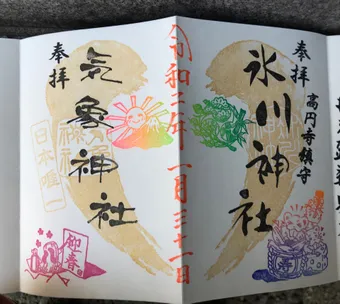 奉拝
高円寺鎮守
氷川神社
令和二年一月三十一日
奉拝
気象神社
日本唯一
迎春
寿